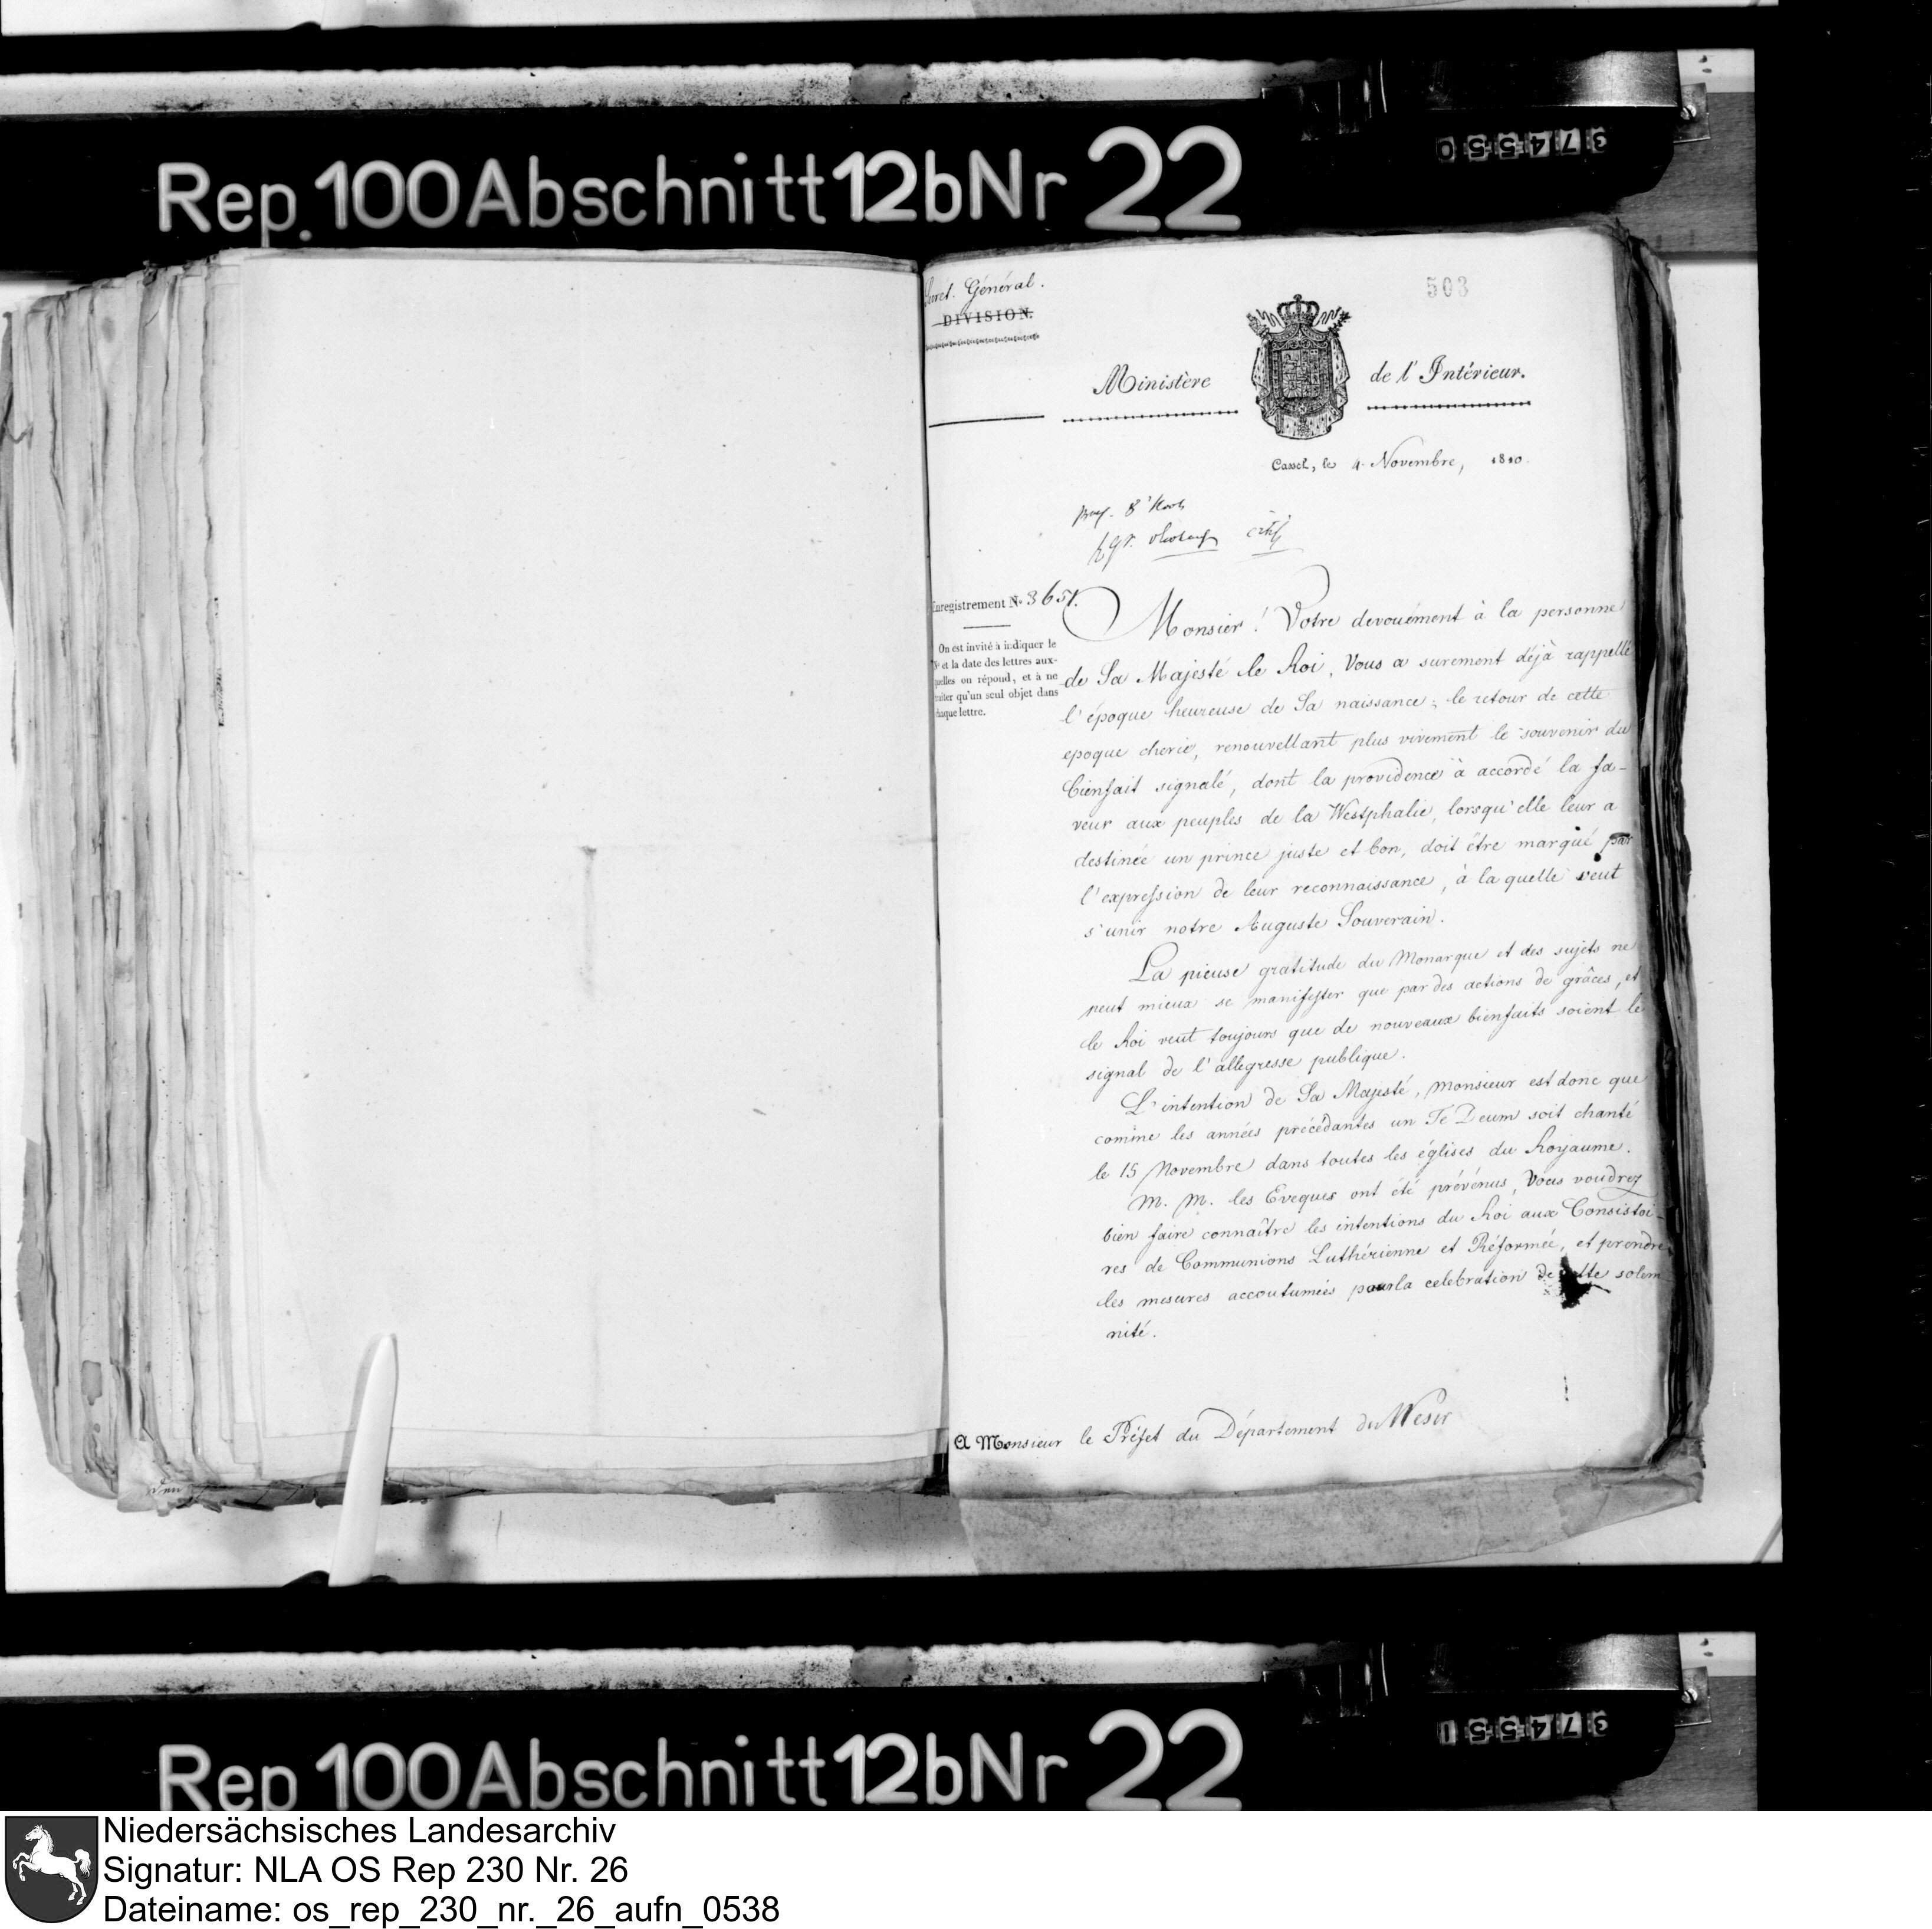 374550
Rep. 100 Abschnitt 12b Nr 22
Secret. Général.
DIVISION.
503
Ministère de l'Intérieur.
Cassel, le 4 Novembre, 1810.
Enregistrement No 3651.
On est invité à indiquer le
No et la date des lettres aux-
quelles on répond, et à ne
traiter qu'un seul objet dans
chaque lettre.
Monsier! Votre devouément à la personne
de Sa Majesté le Roi, Vous a surement déjà rappellé
l'époque heureuse de Sa naissance; le retour de cette
epoque cherie, renouvellant plus vivement le souvenir du
bienfait signalé, dont la providence à accordé la fa-
veur aux peuples de la Westphalie, lorsqu'elle leur a
destinée un prince juste et bon, doit être marqué par
l'expression de leur reconnaissance, à la quelle veut
s'unir notre Auguste Souverain.
La pieuse gratitude du Monarque et des sujets ne
peut mieux se manifester que par des actions de grâces, et
le Roi veut toujours que de nouveaux bienfaits soient le
signal de l'allegresse publique.
L'intention de Sa Majesté, Monsieur est donc que
comme les années précédantes un Te Deum soit chanté
le 15 Novembre dans toutes les églises du Royaume.
M. M. les Eveques ont été prévénus, Vous voudrez
bien faire connaître les intentions du Roi aux Consistoi-
res de Communions Luthérienne et Réformée, et prendre
les mesures accoutumées pour la celebration de cette solem
nité.
A Monsieur le Préfet du Département du Weser
374551
Rep 100 Abschnitt 12b Nr 22
Niedersächsisches Landesarchiv
Signatur: NLA OS Rep 230 Nr. 26
Dateiname: os_rep_230_nr._26_aufn_0538